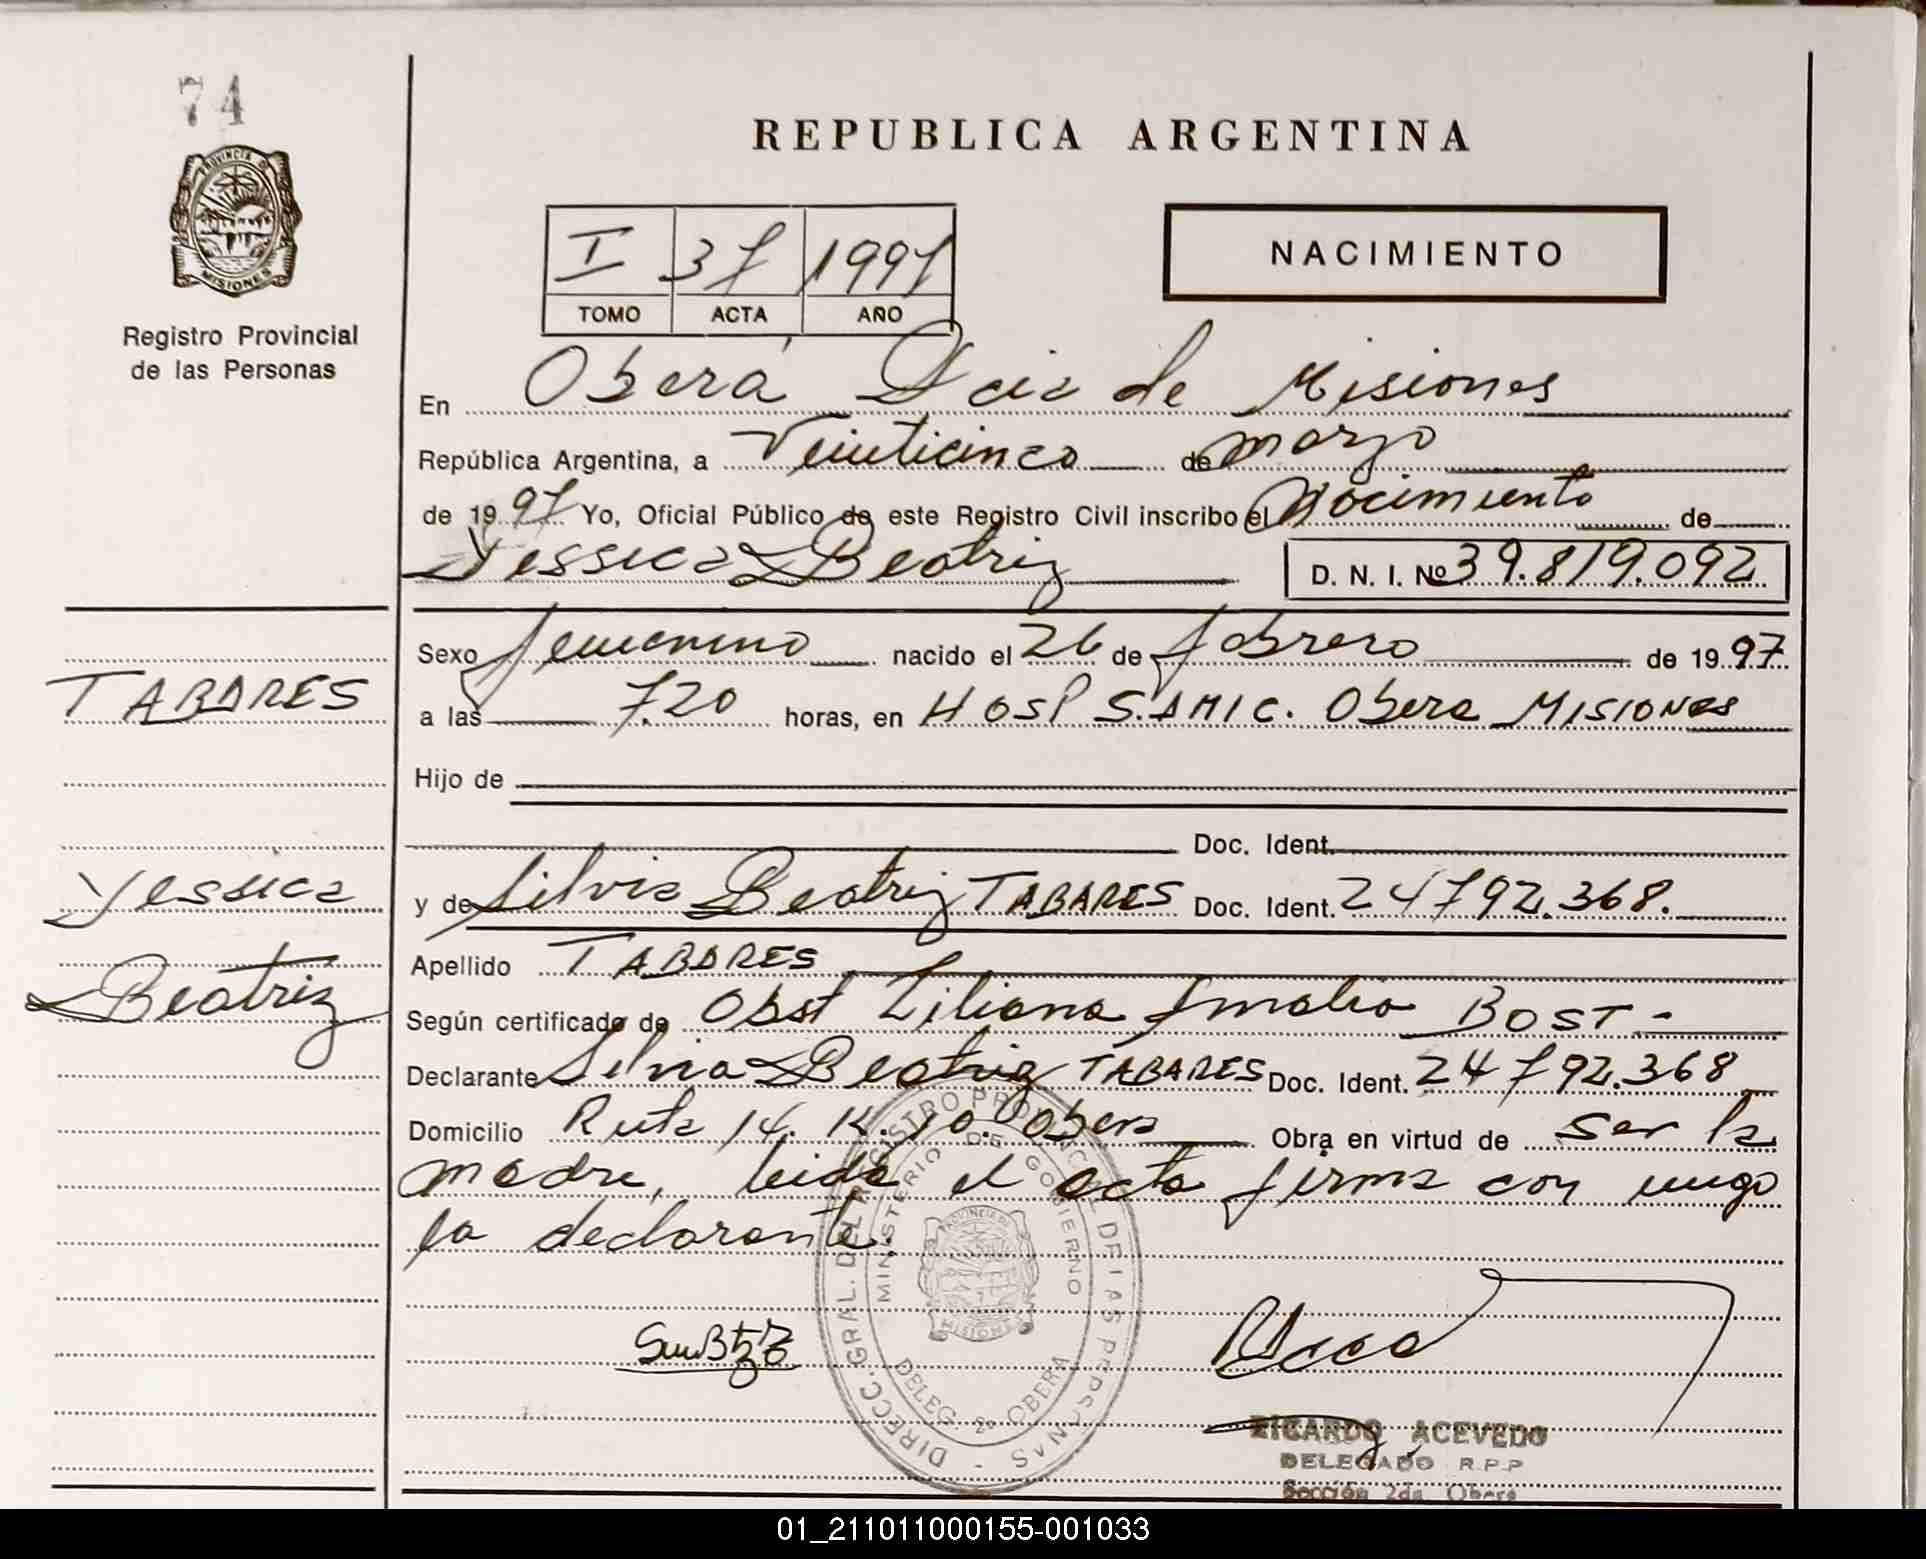 74
PROVINCIA DE
MISIONES
Registro Provincial
de las Personas
TABARES
Yessica
Beatriz
REPUBLICA ARGENTINA
I 37 1997
TOMO ACTA AÑO
NACIMIENTO
En Oberá Pcia de Misiones
República Argentina, a Veinticinco de marzo
de 1997 Yo, Oficial Público de este Registro Civil inscribo el Nacimiento de
Yessica Beatriz D. N. I. Nº 39.819.092
Sexo femenino nacido el 26 de febrero de 1997
a las 7.20 horas, en HOSP S.AMIC. Obera MISIONES
Hijo de
Doc. Ident.
y de Silvia Beatriz TABARES Doc. Ident. 24792.368.
Apellido TABARES
Según certificado de Obst Liliana Amalia BOST -
Declarante Silvia Beatriz TABARES Doc. Ident. 24792.368
Domicilio Ruta 14. K. 10. Obera Obra en virtud de ser la
madre, leida el acta firma con migo
la declarante.
DIRECC. GRAL. DEL REGISTRO PROVINCIAL DE LAS PERSONAS -
MINISTERIO DE GOBIERNO
PROVINCIA DE
MISIONES
DELEG. 2º OBERA
RICARDO ACEVEDO
DELEGADO R.P.P
Sección 2da Oberá
01_211011000155-001033